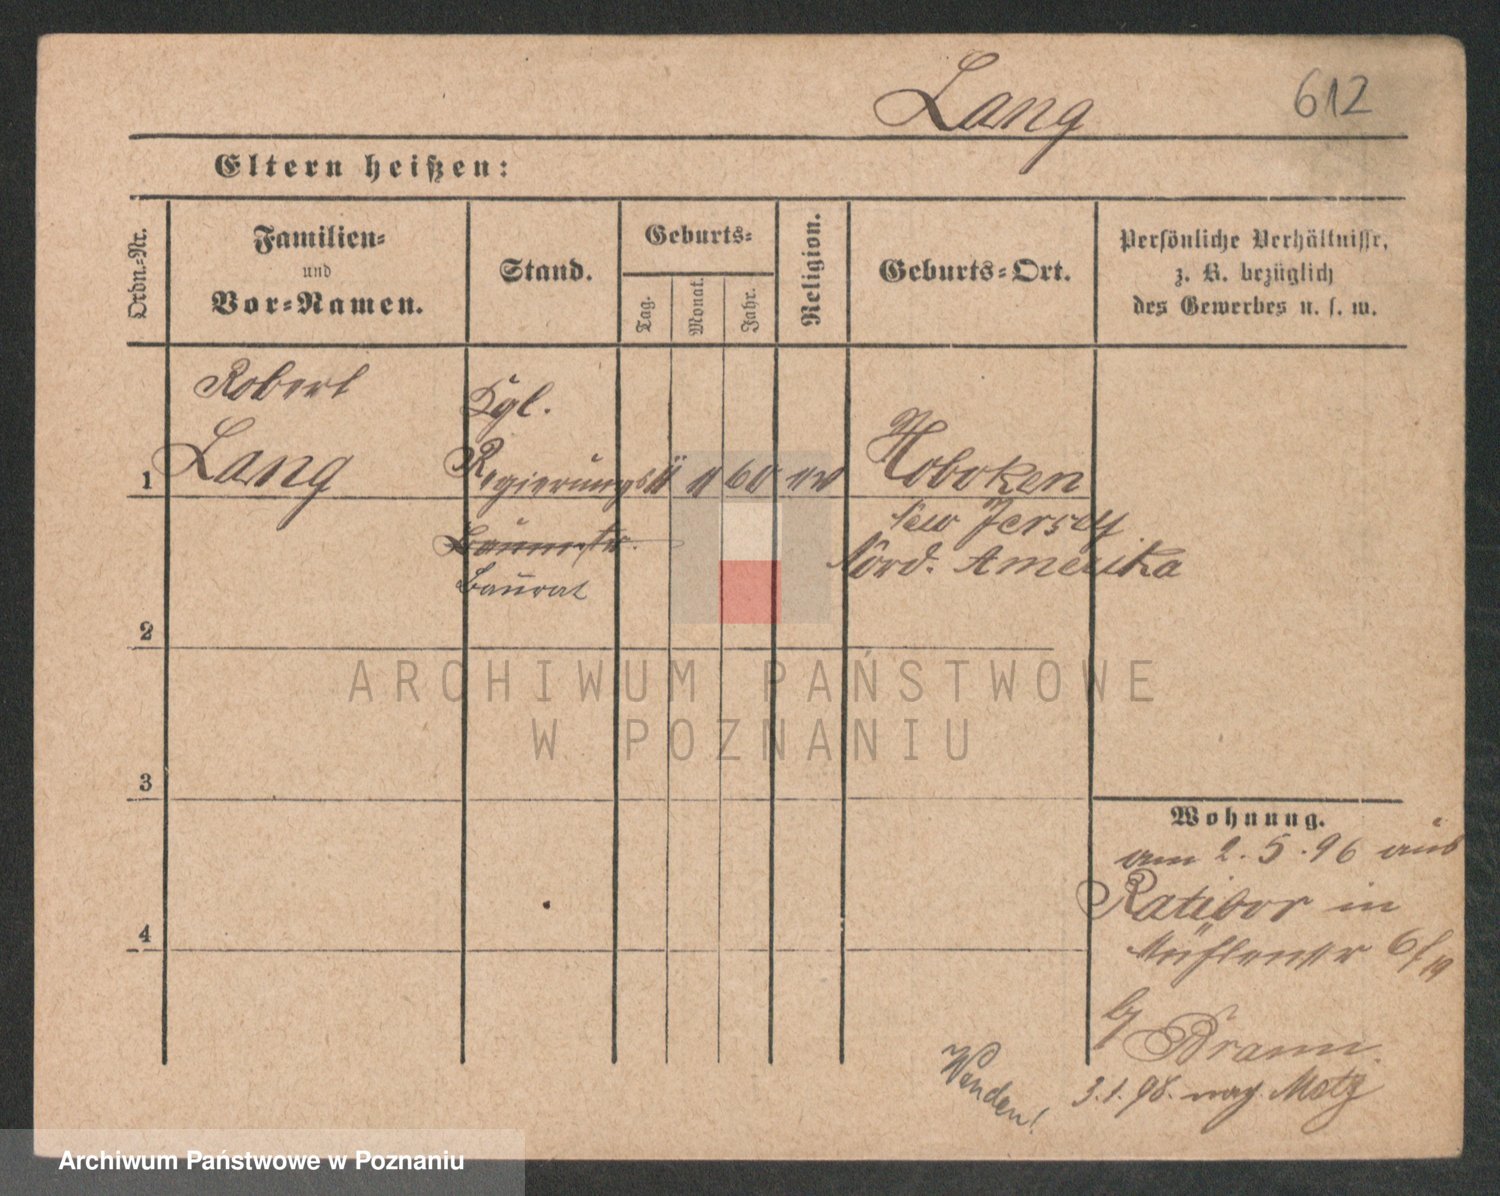 Lang
612
Eltern heißen:
Ordn.-Nr.
Familien-
und
Vor-Namen.
Stand.
Geburts-
Tag.
Monat.
Jahr.
Religion.
Geburts-Ort.
Persönliche Verhältnisse,
z. B. bezüglich
des Gewerbes u. s. w.
Robert
Lang
Kgl.
Regierungs
Baumstr.
Baurat
1
60
Hoboken
New Jersey
Nord. Amerika
2
ARCHIWUM PAŃSTWOWE
W POZNANIU
3
4
Wohnung.
am 2.5.96 aus
Ratibor in
Mühlenstr 6/19
by Braun.
3.1.98. nach Metz
Wenden!
Archiwum Państwowe w Poznaniu